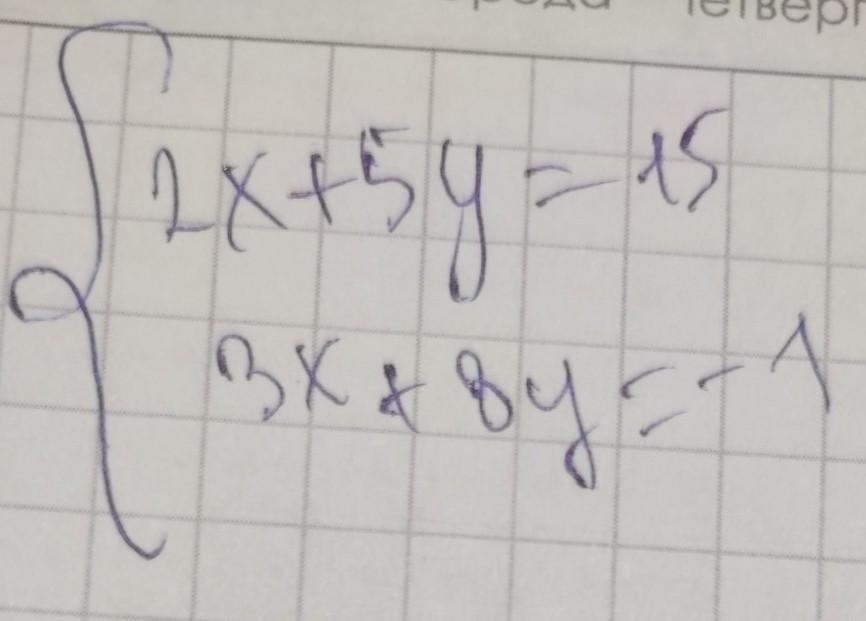 четверг
2x+5y=15
3x+8y=-1